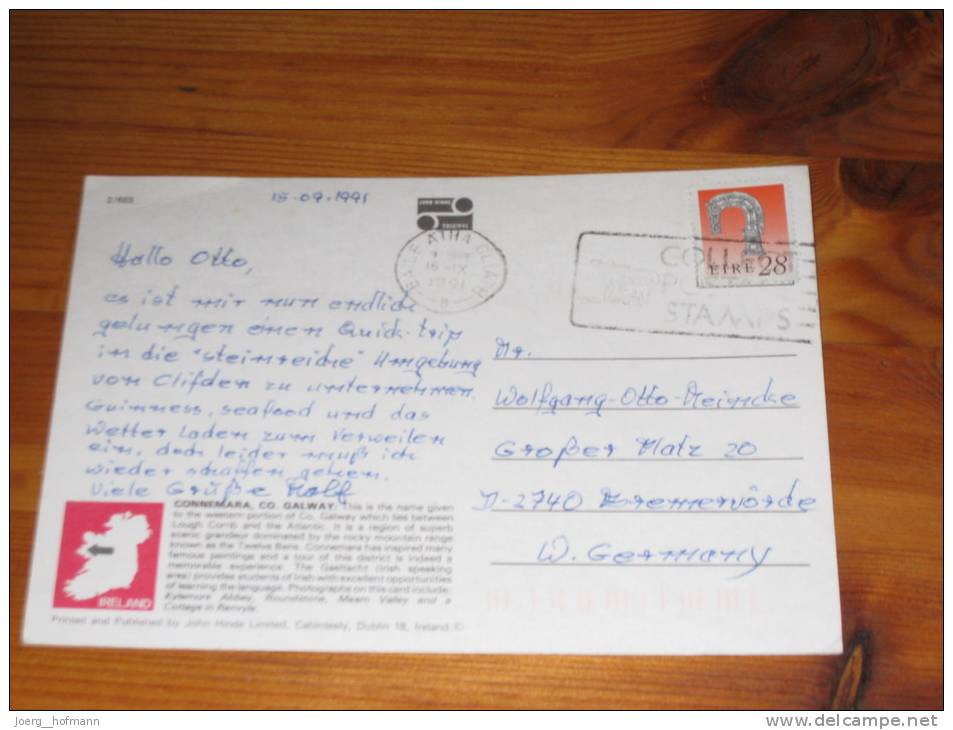 2/669
15-09-1991
JOHN HINDE
ORIGINAL
BAILE ATHA CLIATH
16 IX
1991
COLLECT
STAMPS
ÉIRE 28
Hallo Otto,
es ist mir nun endlich
gelungen einen Quick-trip
in die "steinreiche" Umgebung
von Clifden zu unternehmen.
Guinness, seafood und das
Wetter laden zum Verweilen
ein, doch leider muß ich
wieder schaffen gehen.
Viele Grüße Rolf
Hr.
Wolfgang-Otto-Meincke
Großer Platz 20
D-2740 Bremervörde
W. Germany
IRELAND
CONNEMARA, CO. GALWAY: This is the name given
to the western portion of Co. Galway which lies between
Lough Corrib and the Atlantic. It is a region of superb
scenic grandeur dominated by the rocky mountain range
known as the Twelve Bens. Connemara has inspired many
famous paintings and a tour of this district is indeed a
memorable experience. The Gaeltacht (Irish speaking
area) provides students of Irish with excellent opportunities
of learning the language. Photographs on this card include:
Kylemore Abbey, Roundstone, Maam Valley and a
Cottage in Renvyle.
Printed and Published by John Hinde Limited, Cabinteely, Dublin 18, Ireland ©
joerg__hofmann
www.delcampe.net